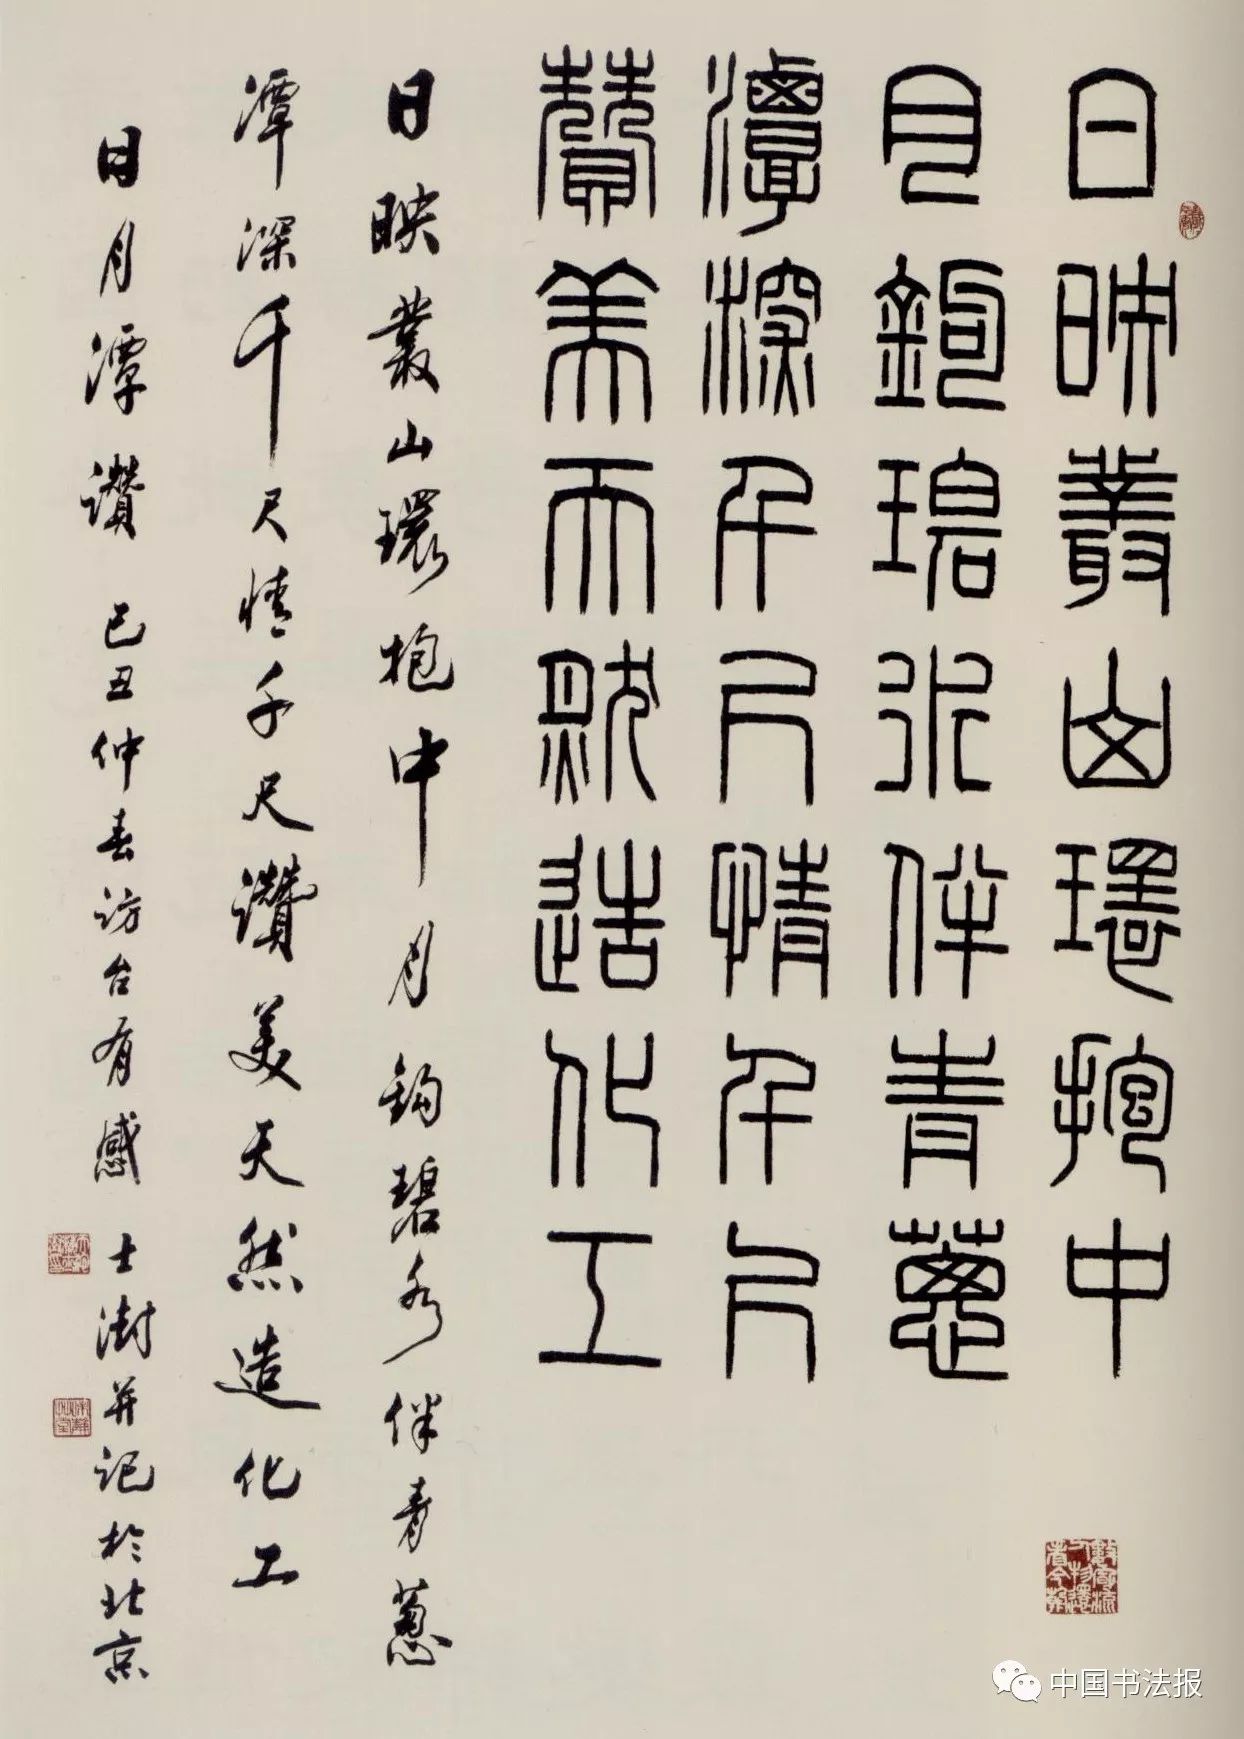 日映叢山環抱中
月鉤碧水伴青蔥
潭深千尺情千尺
贊美天然造化工
日映叢山環抱中月鈎碧水伴青蔥
潭深千尺情千尺讚美天然造化工
日月潭讚 己丑仲春访台有感 士澍并记於北京
中国书法报